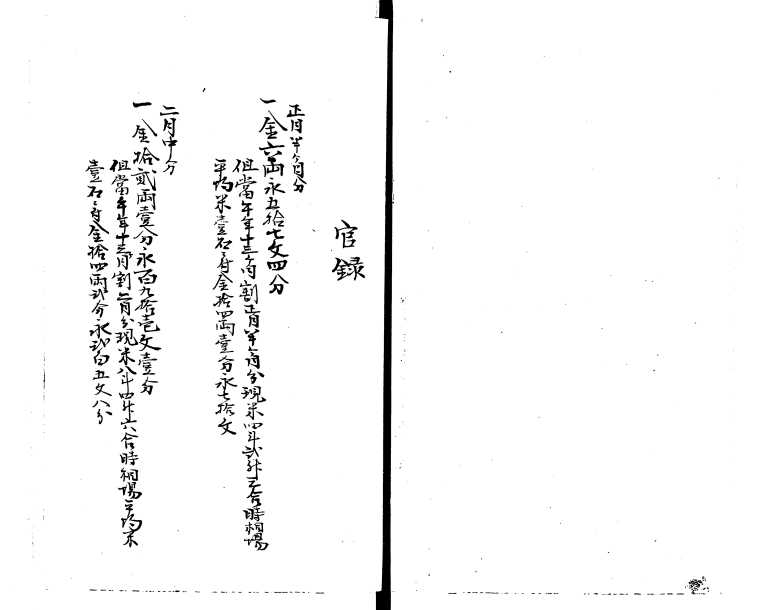 官録
正月半ヶ月分
一金六両永五拾七文四分
但當午年十三ヶ月割正月半ヶ月分現米四斗弐升三合時相場
平均米壹石ニ付金拾四両壹分永七拾文
二月中分
一金拾貳両壹分永百九拾壱文壹分
但當午年十三ヶ月割二月分現米八斗四升六合時相場平均米
壹石ニ付金拾四両弐分永弐百五文八分